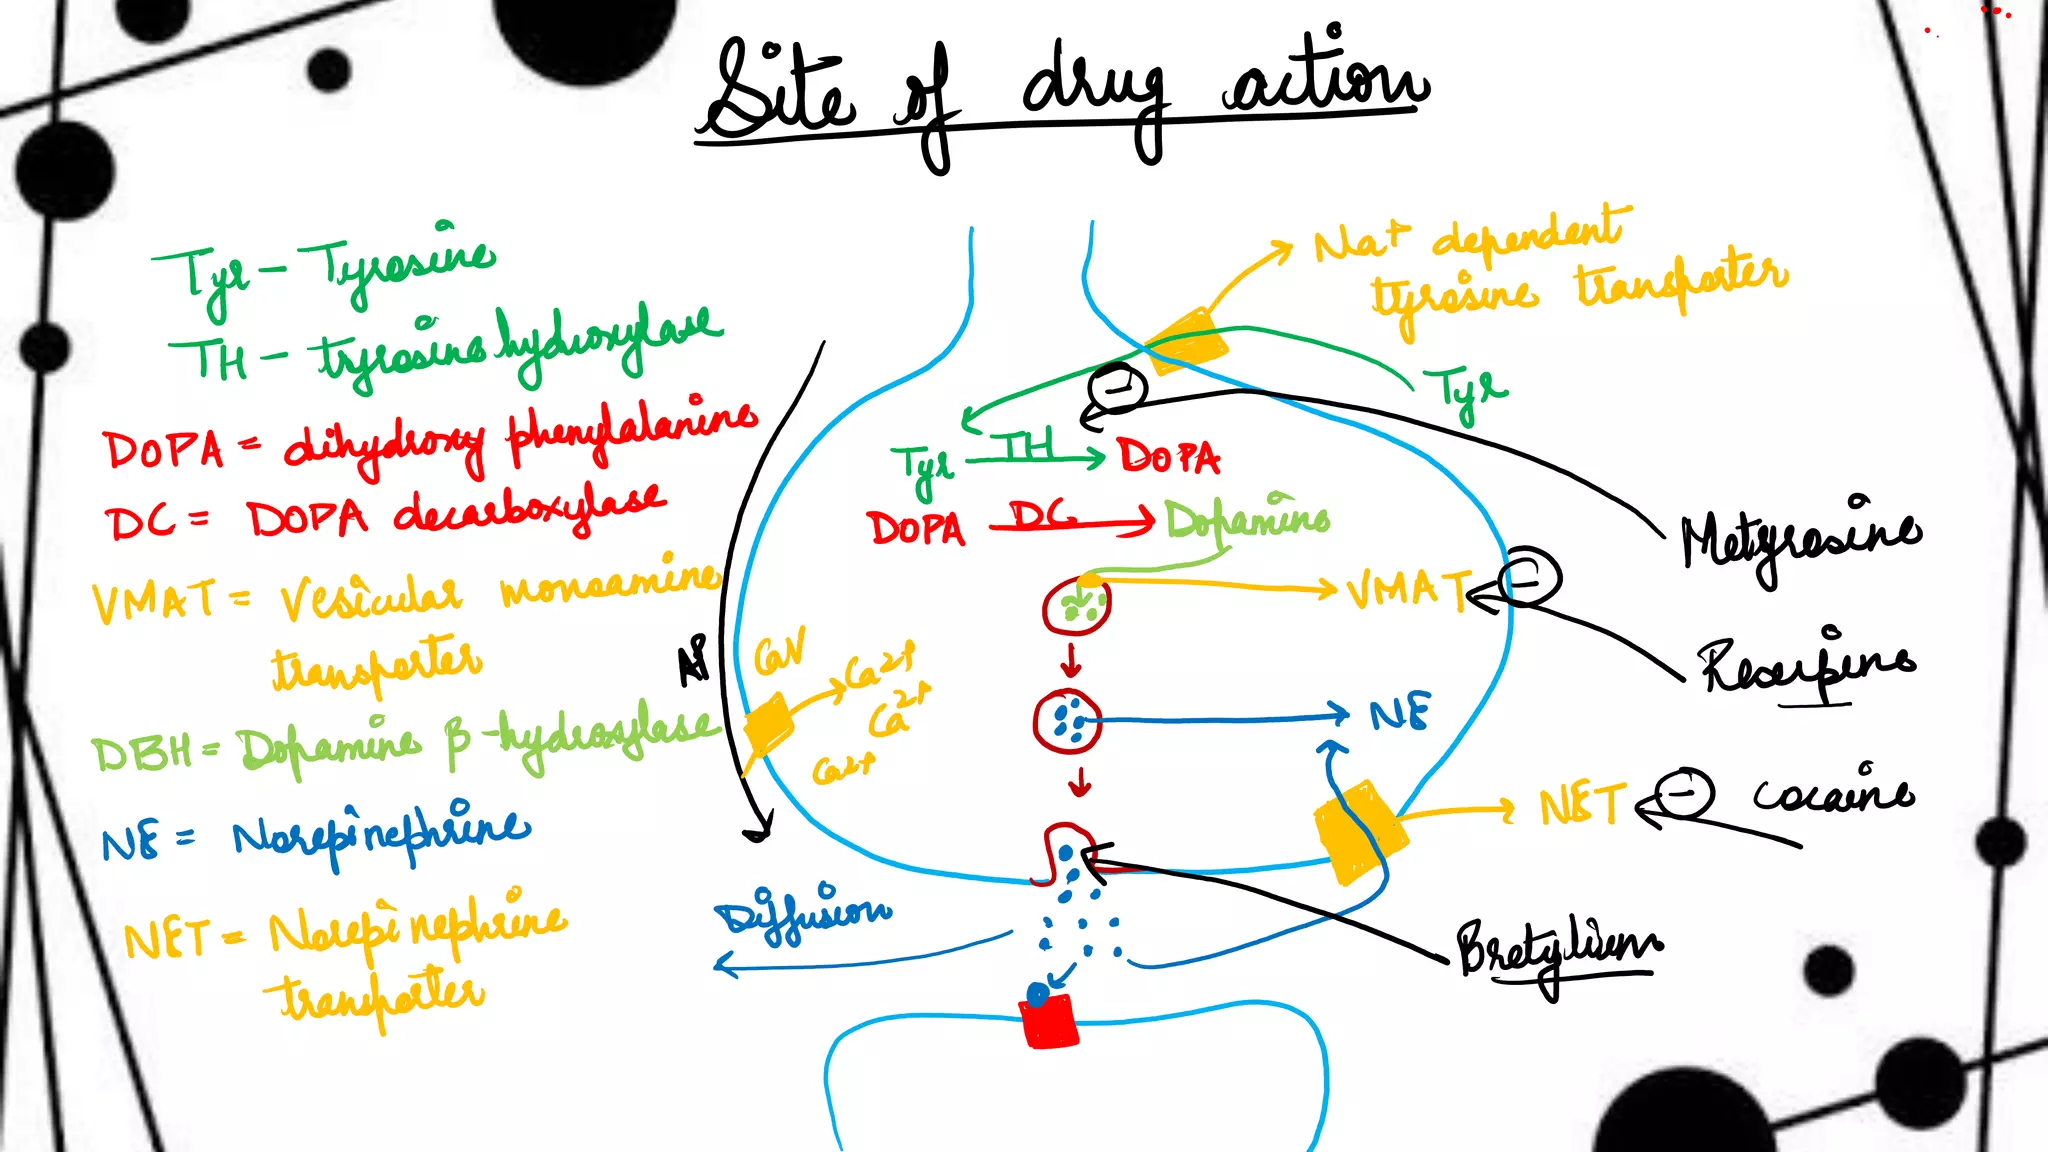 Site of drug action
Tyr - Tyrosine
TH - tyrosine hydroxylase
DOPA = dihydroxy phenylalanine
DC = DOPA decarboxylase
VMAT = Vesicular monoamine
transporter
DBH = Dopamine β-hydroxylase
NE = Norepinephrine
NET = Norepinephrine
transporter
Na+ dependent
tyrosine transporter
Tyr
Tyr TH DOPA
DOPA DC Dopamine
VMAT
Metyrosine
Reserpine
AP
CaV
Ca2+
Ca2+
Ca2+
NE
NET
cocaine
Diffusion
Bretylium